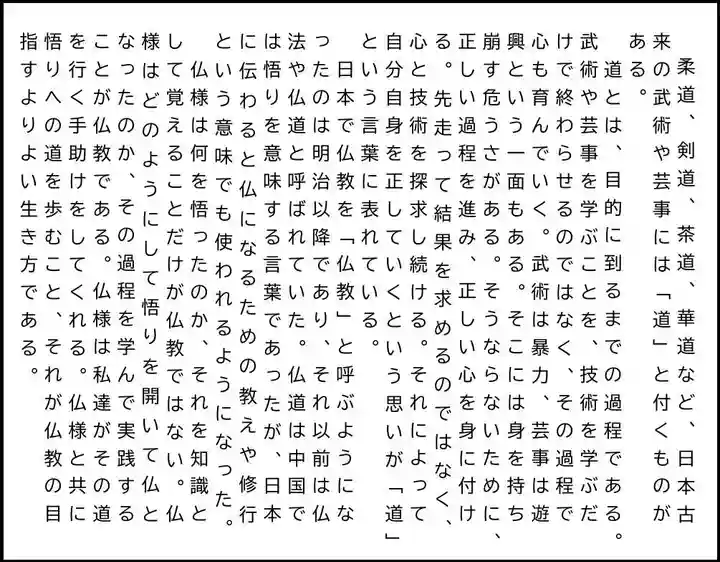 柔道、剣道、茶道、華道など、日本古
来の武術や芸事には「道」と付くものが
ある。
　道とは、目的に到るまでの過程である。
武術や芸事を学ぶことを、技術を学ぶだ
けで終わらせるのではなく、その過程で
心も育んでいく。武術は暴力、芸事は遊
興という一面もある。そこには身を持ち
崩す危うさがある。そうならないために、
正しい過程を進み、正しい心を身に付け
る。先走って結果を求めるのではなく、
心と技術を探求し続ける。それによって
自分自身を正していくという思いが「道」
という言葉に表れている。
　日本で仏教を「仏教」と呼ぶようにな
ったのは明治以降であり、それ以前は仏
法や仏道と呼ばれていた。仏道は中国で
は悟りを意味する言葉であったが、日本
に伝わると仏になるための教えや修行
という意味でも使われるようになった。
　仏様は何を悟ったのか、それを知識と
して覚えることだけが仏教ではない。仏
様はどのようにして悟りを開いて仏と
なったのか、その過程を学んで実践する
ことが仏教である。仏様は私達がその道
を行く手助けをしてくれる。仏様と共に
悟りへの道を歩むこと、それが仏教の目
指すよりよい生き方である。